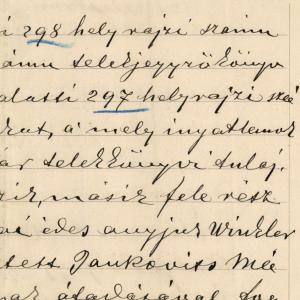 i 298 helyrajzi számu
számu telekjegyzőkönyv
alatti 297 helyrajzi szá
kat, a mely ingatlanok
ár telekkönyvi tulaj
zik, másik fele rész
ai édes anyjuk Winkler
tess Pankovits Má
átadásával